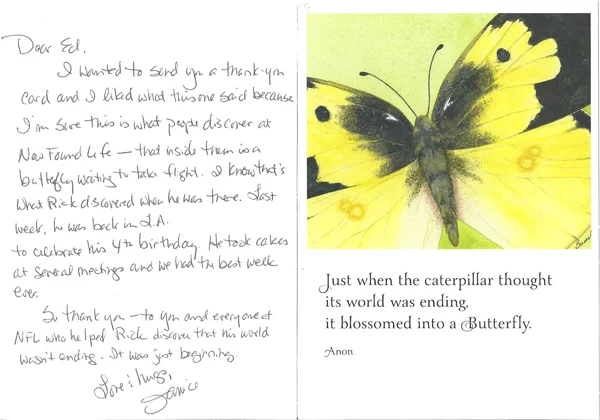 Dear Ed,
I wanted to send you a thank-you
card and I liked what this one said because
I'm sure this is what people discover at
New Found Life — that inside them is a
butterfly waiting to take flight. I know that's
what Rick discovered when he was there. Last
week, he was back in L.A.
to celebrate his 4th birthday. He took cakes
at several meetings and we had the best week
ever.
So thank you — to you and everyone at
NFL who helped Rick discover that his world
wasn't ending - It was just beginning.
Love & hugs,
Janice
Just when the caterpillar thought
its world was ending,
it blossomed into a Butterfly.
Anon